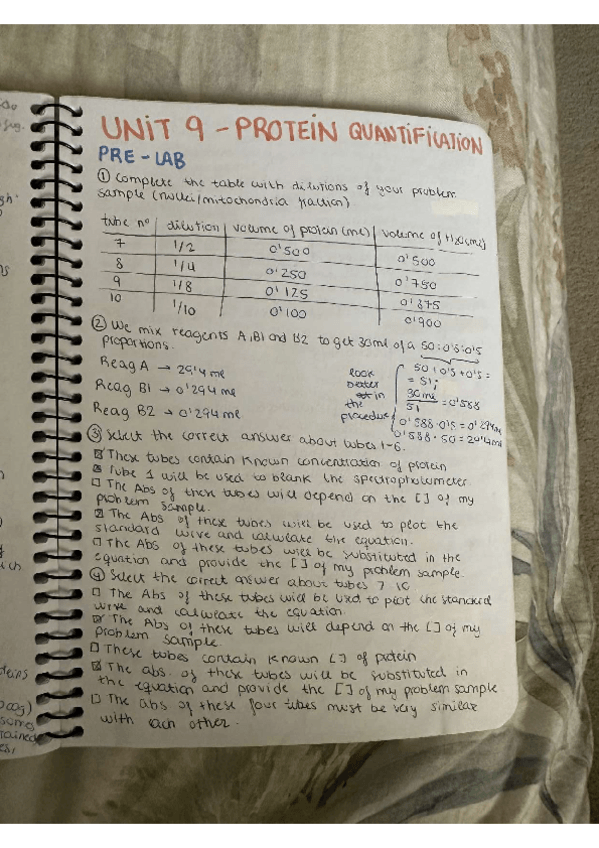 UNIT 9 - PROTEIN QUANTIFICATION
PRE-LAB
① Complete the table with dilutions of your problem
sample (nuclei/mitochondria fraction)
tube nº | dilution | volume of protein (ml) | volume of H2O (ml)
7 | 1/2 | 0'500 | 0'500
8 | 1/4 | 0'250 | 0'750
9 | 1/8 | 0'125 | 0'875
10 | 1/10 | 0'100 | 0'900
② We mix reagents A, B1 and B2 to get 30ml of a 50:0'5:0'5
proportions.
Reag A → 29'4 ml
Reag B1 → 0'294 ml
Reag B2 → 0'294 ml
look
better
in
the
procedure
50+0'5+0'5=
= 51;
30 ml
51
= 0'588
0'588·0'5 = 0'294ml
0'588·50 = 29'4ml
③ Select the correct answer about tubes 1-6.
These tubes contain known concentration of protein
Tube 1 will be used to blank the spectrophotometer
The Abs of these tubes will depend on the [] of my
problem sample.
The Abs of these tubes will be used to plot the
standard curve and calculate the equation.
The Abs of these tubes will be substituted in the
equation and provide the [] of my problem sample.
④ Select the correct answer about tubes 7 10
The Abs of these tubes will be used to plot the standard
curve and calculate the equation.
The Abs of these tubes will depend on the [] of my
problem sample
These tubes contain known [] of protein
The abs. of these tubes will be substituted in
the equation and provide the [] of my problem sample
The abs of these four tubes must be very similar
with each other.